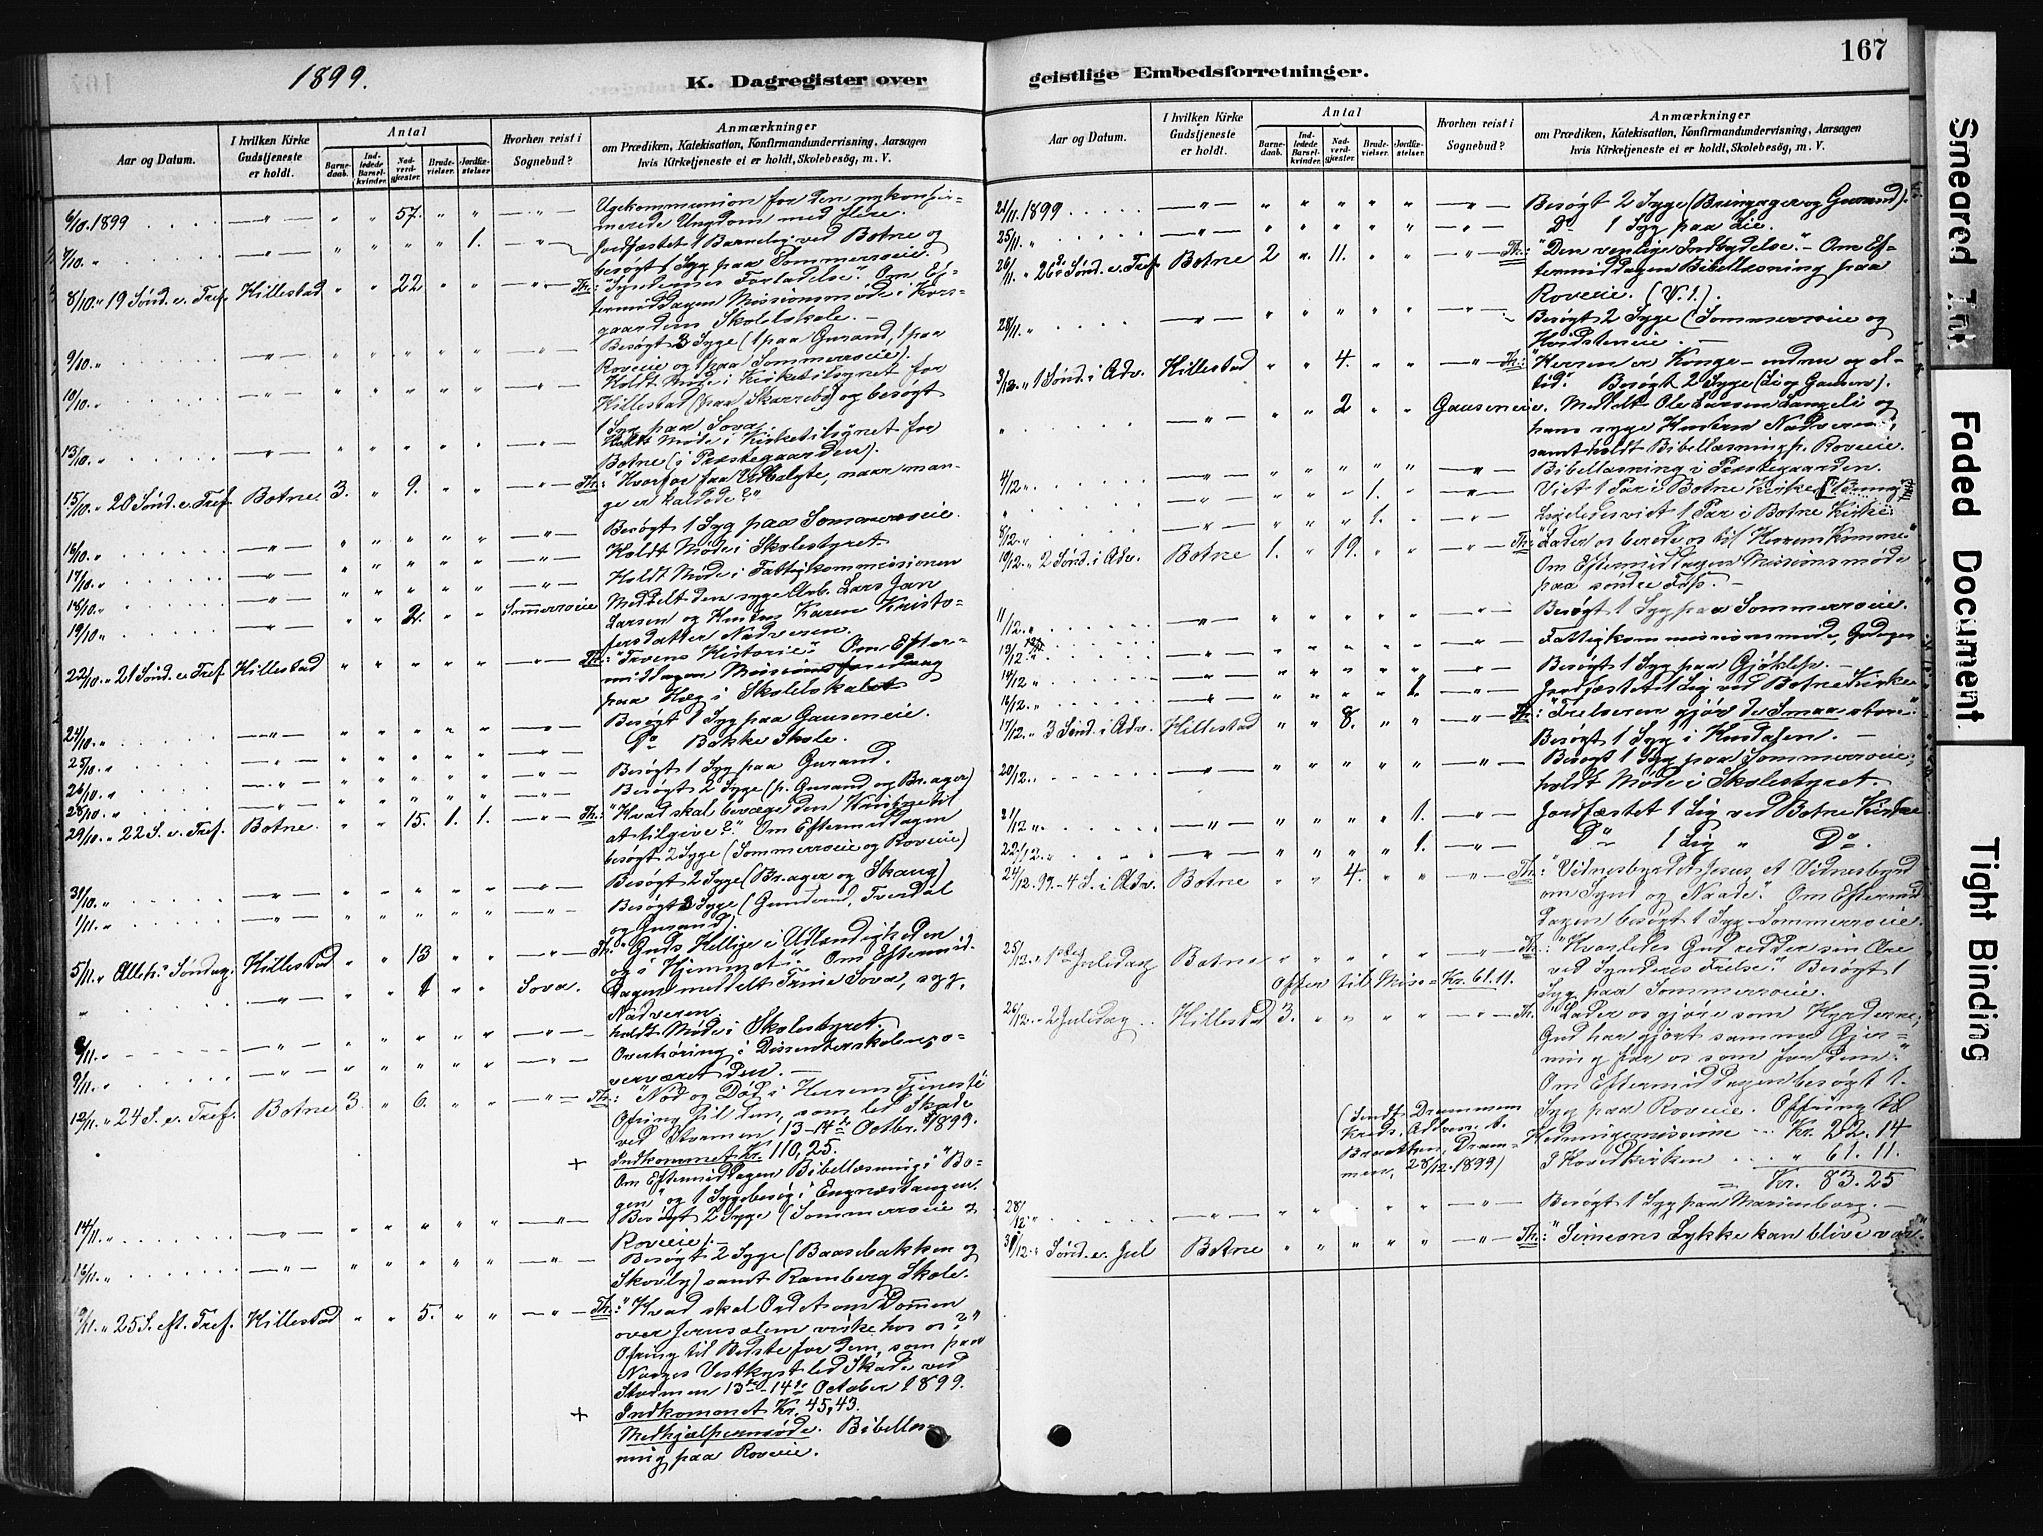 1899.
K. Dagregister over
geistlige Embedsforretninger.
167
Aar og Datum.
I hvilken Kirke Gudstjeneste er holdt.
Antal
Barnedaab.
Indledede Barselkvinder.
Nadverdgjæster.
Brudevielser.
Jordfæstelser.
Hvorhen reist i Sognebud?
Anmærkninger
om Prædiken, Katekisation, Konfirmandundervisning, Aarsagen
hvis Kirketjeneste ei er holdt, Skolebesøg, m. V.
6/10. 1899 — " — " " 57. " " — " — Ugekommunion for den nykonfir-
merede Ungdom med flere.
7/10. " — " — " " " " 1. — " — Jordfæstet 1 Barnelig ved Botne og
besøgt 1 Syg paa Sommerroeie.
8/10. " 19 Sønd. e. Tref. Hillestad " " 22 " " — " — Th: "Syndernes Forladelse". Om Ef-
termiddagen Missionsmøde i Kors-
gaardens Skolelskole. —
9/10. " — " — " " " " " — " — Besøgt 3 Syge (1 paa Gurand, 1 paa
Roveie og 1 paa Sommerroeie).
10/10. " — " — " " " " " — " — Holdt Møde i Kirketilsynet for
Hillestad (paa Skarrebo) og besøgt
1 Syg paa Sova.
13/10. " — " — " " " " " — " — Holdt Møde i Kirketilsynet for
Botne (i Præstegaarden).
15/10. " 20 Sønd. e. Tref. Botne 3. " 9. " " — " — Th: "Hvorfor faa Udvalgte, naar man-
ge er kaldede?"
16/10. " — " — " " " " " — " — Besøgt 1 Syg paa Sommerroeie.
17/10. " — " — " " " " " — " — Holdt Møde i Skolestyret.
18/10. " — " — " " " " " — " — Holdt Møde i Fattigkommissionen
19/10. " — " — " " 2. " " Sommerroeie Meddelt den syge Arb. Lars Jan
Larsen og Hustru Karen Kristo-
fersdatter Nadveren.
22/10. " 21 Sønd. e. Tref. Hillestad — " — Th: "Troens Historie". Om Efter-
middagen Missionsforedrag
paa Hæg i Skolelskalet
24/10. " — " — " " " " " — " — Besøgt 1 Syg paa Gauseneie.
25/10. " — " — " " " " " — " — Do Bakke Skole.
26/10. " — " — " " " " " — " — Besøgt 1 Syg paa Gurand.
28/10. " — " — " " " " " — " — Besøgt 2 Syge (p. Gurand og Br. ager)
29/10. " 22 S. e. Tref. Botne. " " 15. 1. 1. — " — Th: "Hvad skal bevæge den Kristne til
at tilgive?" Om Eftermiddagen
besøgt 2 Syge (Sommerroeie og Roveie)
31/10. " — " — " " " " " — " — Besøgt 2 Syge (Br. ager og Skaug)
1/11. " — " — " " " " " — " — Besøgt 3 Syge (Gunderud, Tverdal
og Gurand).
5/11. " Alleh. Søndag. Hillestad " " 13 " " — " — Th: "Guds Hellige i Udlændigheden
og i Hjemmet". Om Eftermid-
" — " — " " 1 " " Sova. dagen meddelt Trine Sova, syg,
Nadveren.
8/11. " — " — " " " " " — " — holdt Møde i Skolestyret.
9/11. " — " — " " " " " — " — Overhøring i Dissenterskolen, o-
verværet den. —
12/11. " 24 S. e. Tref. Botne 3 " 6. " " — " — Th: "Nød og Død i Herrens Tjeneste
Ofring til dem, som led Skade
ved Stormen 13-14de Octbr. 1899.
+ Indkommet Kr. 110,25.
Om Eftermiddagen Bibellæsning i "Bo-
gen" og 1 Sygebesøg i Engnæstangen.
14/11. " — " — " " " " " — " — Besøgt 2 Syge (Sommerroeie og
Roveie). —
16/11. " — " — " " " " " — " — Besøgt 2 Syge (Baasebakken og
Skovly) samt Ramberg Skole.
19/11. " 25 S. eft. Tref. Hillestad " " 5. " " — " — Th: "Hvad skal Ordet om Dommen
over Jerusalem virke hos os?"
Ofring til Bedste for dem, som paa
Norges Vestkyst led Skade ved
Stormen 13de-14de October 1899.
+ Indkommet Kr. 45,43.
Medhjælpermøde. Bibellæs-
ning paa Roveie.
Aar og Datum.
I hvilken Kirke Gudstjeneste er holdt.
Antal
Barnedaab.
Indledede Barselkvinder.
Nadverdgjæster.
Brudevielser.
Jordfæstelser.
Hvorhen reist i Sognebud?
Anmærkninger
om Prædiken, Katekisation, Konfirmandundervisning, Aarsagen
hvis Kirketjeneste ei er holdt, Skolebesøg, m. V.
21/11. 1899 — " — " " " " " — " — Besøgt 2 Syge (Bringager og Gurand).
25/11. " — " — " " " " " — " — Do 1 Syg paa Lie.
26/11. " 26de Sønd. e. Tref. Botne 2 " 11. " " — " — Th: "Den venlige Indbydelse". — Om Ef-
termiddagen Bibellæsning paa
Roveie. (V. 1.).
28/11. " — " — " " " " " — " — Besøgt 2 Syge (Sommerroeie og
Hvidsteneie. —
3/12. " 1 Sønd. i Adv. Hillestad " " 4. " " — " — Th: "Herren er Konge — endnu og al-
tid". Besøgt 2 Syge (Li og Gausen).
" — " — " " 2 " " Gauseneie. Meddelt Ole Larsen Langeli og
hans syge Hustru Nadveren,
samt holdt Bibellæsning p. Roveie.
4/12. " — " — " " " " " — " — Bibellæsning i Præstegaarden.
" — " — " " " 1. " — " — Viet 1 Par i Botne Kirke
8/12. " — " — " " " 1. " — " — Ligeledes viet 1 Par i Botne Kirke
10/12. " 2 Sønd. i Adv. Botne 1. " 19. " " — " — Th: "Lader os berede os til Herrens Komme"
Om Eftermiddagen Missionsmøde
paa søndre Fos. —
11/12. " — " — — " — Besøgt 1 Syg paa Sommerroeie.
12/12. " — " — — " — Fattigkommissionsmøde,
14/12 " — " — " " " " " — " — Besøgt 1 Syg paa Gjøklep. —
16/12. " — " — " " " " 1. — " — Jordfæstet 1 Lig ved Botne Kirke
17/12. " 3 Sønd. i Adv. Hillestad " " 8. " " — " — Th: "Frelseren gjør de Smaa store".
Besøgt 1 Syg i Hustasen. —
20/12. — " — " " " " " — " — Besøgt 1 Syg paa Sommerroeie,
holdt Møde i Skolestyret.
21/12 " — " — " " " " 1. — " — Jordfæstet 1 Lig ved Botne Kirke
22/12. " — " — " " " " 1. — " — Do 1 Lig " Do.
24/12. 99. 4 S. i Adv. Botne " " 4. " " — " — Th: "Vidnesbyrdet Jesus, et Vidnesbyrd
om Synd og Naade". Om Eftermid-
dagen besøgt 1 Syg Sommerroeie.
25/12. " 1ste Juledag Botne " " " " " — " — Th: "Hvorledes Gud redder sin Ære
ved Synderes Frelse." Besøgt 1
Offer til Miss = Kr. 61.11. Syg paa Sommerroeie.
26/12. " 2 Juledag Hillestad 3. " " " " — " — Th: "Lader os gjøre som Hyrderne,
Gud har gjort samme Gjer-
ning for os som for dem".
Om Eftermiddagen besøgt 1
(Sendt Drammens Syg paa Roveie. Offring til
Kreds. Adresse: A. Hedningemissionen Kr. 22.14
Braathen, Dram- I Hovedkirken " 61.11.
men, 28/12. 1899) = Kr. 83.25
28/12 " — " — " " " " " — " — Besøgt 1 Syg paa Marienborg. —
31/12. " Sønd. e. Jul Botne " " " " " — " — Th: "Simeons Lykke kan blive vor".
Smeared Ink
Faded Document
Tight Binding